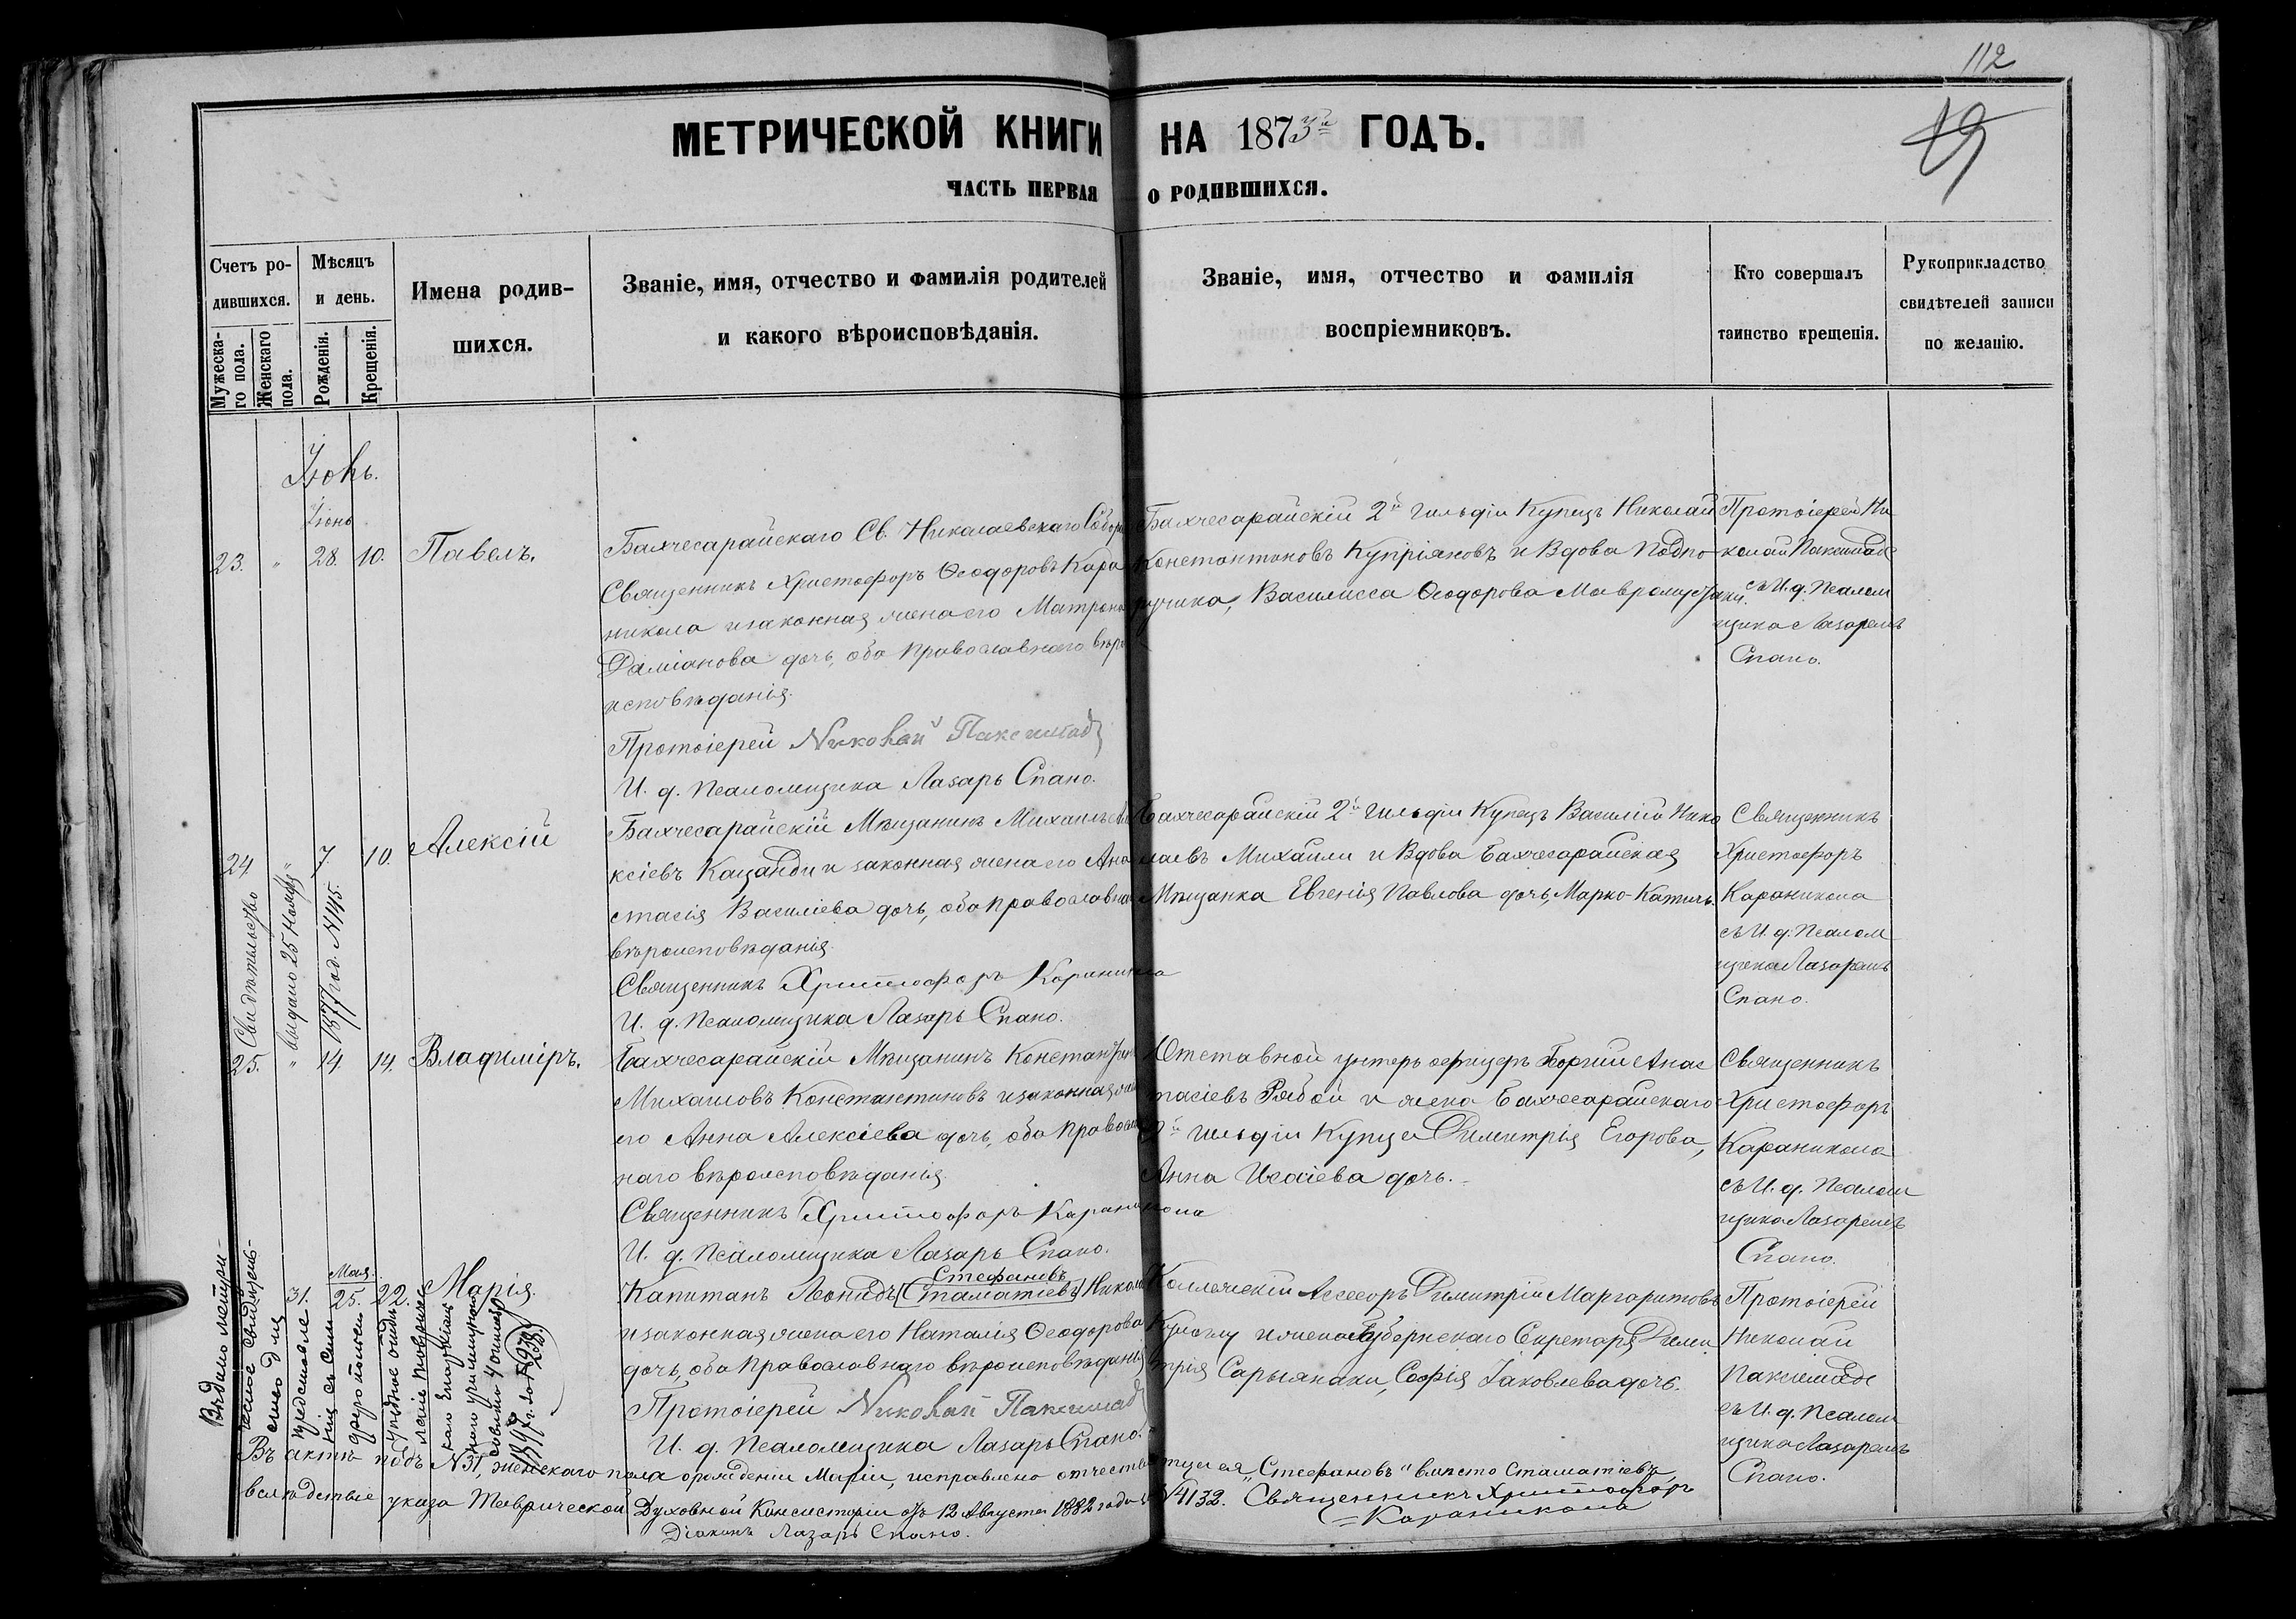 112
19
МЕТРИЧЕСКОЙ КНИГИ НА 1873й ГОДЪ.
ЧАСТЬ ПЕРВАЯ О РОДИВШИХСЯ.
Счетъ ро-
дившихся.
Мужеска-
го пола.
Женскаго
пола.
Мѣсяцъ
и день.
Рожденія.
Крещенія.
Имена родив-
шихся.
Званіе, имя, отчество и фамилія родителей
и какого вѣроисповѣданія.
Званіе, имя, отчество и фамилія
воспріемниковъ.
Кто совершалъ
таинство крещенія.
Рукоприкладство
свидѣтелей записи
по желанію.
Іюнь
23. " 28. 10. Павелъ.
Бахчесарайскаго Св. Николаевскаго Собора
Священникъ Христофоръ Ѳеодоровъ Кара
никола и законная жена его Матрона
Даміанова дочь, оба православнаго вѣро
исповѣданія.
Протоіерей Николай Паксимаде
И. д. Псаломщика Лазарь Спано.
Бахчесарайскій 2й гильдіи Купецъ Николай
Константиновъ Купріяновъ и Вдова Подпо
ручика, Василисса Ѳеодорова Мавромустаки.
Протоіерей Ни
колай Паксимаде
съ И. д. Псалом
щика Лазаремъ
Спано.
24 " 7. 10. Алексій
Свидѣтельство
выдано 25 Ноября
1877 год. N 45.
Бахчесарайскій Мѣщанинъ Михаилъ Але
ксіевъ Кацанди и законная жена его Ана
стасія Василіева дочь, оба православнаго
вѣроисповѣданія.
Священникъ Христофоръ Караникола
И. д. Псаломщика Лазарь Спано.
Бахчесарайскій 2й гильдіи Купецъ Василій Нико
лаевъ Михаили и Вдова Бахчесарайская
Мѣщанка Евгенія Павлова дочь, Марко-Катичь.
Священникъ
Христофоръ
Караникола
съ И. д. Псалом
щика Лазаремъ
Спано.
25. " 14. 14. Владиміръ.
Бахчесарайскій Мѣщанинъ Константинъ
Михаиловъ Константиновъ и законная жена
его Анна Алексіева дочь, оба православ
наго вѣроисповѣданія.
Священникъ Христофоръ Караникола
И. д. Псаломщика Лазарь Спано.
Отставной унтеръ офицеръ Георгій Анас
тасіевъ Рябой и жена Бахчесарайскаго
2й гильдіи Купца Димитрія Егорова,
Анна Исаіева дочь.
Священникъ
Христофоръ
Караникола
съ И. д. Псалом
щика Лазаремъ
Спано.
31. Мая 25. 22. Марія.
Капитанъ Леонидъ (Стаматіевъ) Стефановъ
и законная жена его Наталія Ѳеодорова
дочь, оба православнаго вѣроисповѣданія
Протоіерей Николай Паксимаде
И. д. Псаломщика Лазарь Спано.
Коллежскій Ассесоръ Димитрій Маргаритовъ
и жена Губернскаго Секретаря Дими
трія Сарыянаки, Софія Іаковлева дочь.
Протоіерей
Николай
Паксимаде
съ И. д. Псалом
щика Лазаремъ
Спано.
Въ актѣ подъ N 31, женскаго пола о рожденіи Маріи, исправлено отчество отца ея "Стефановъ" вмѣсто Стаматіевъ,
вслѣдствіе указа Таврической Духовной Консисторіи отъ 12 Августа 1882 года N 4132. Священникъ Христофоръ
Караникола
Діаконъ Лазарь Спано.